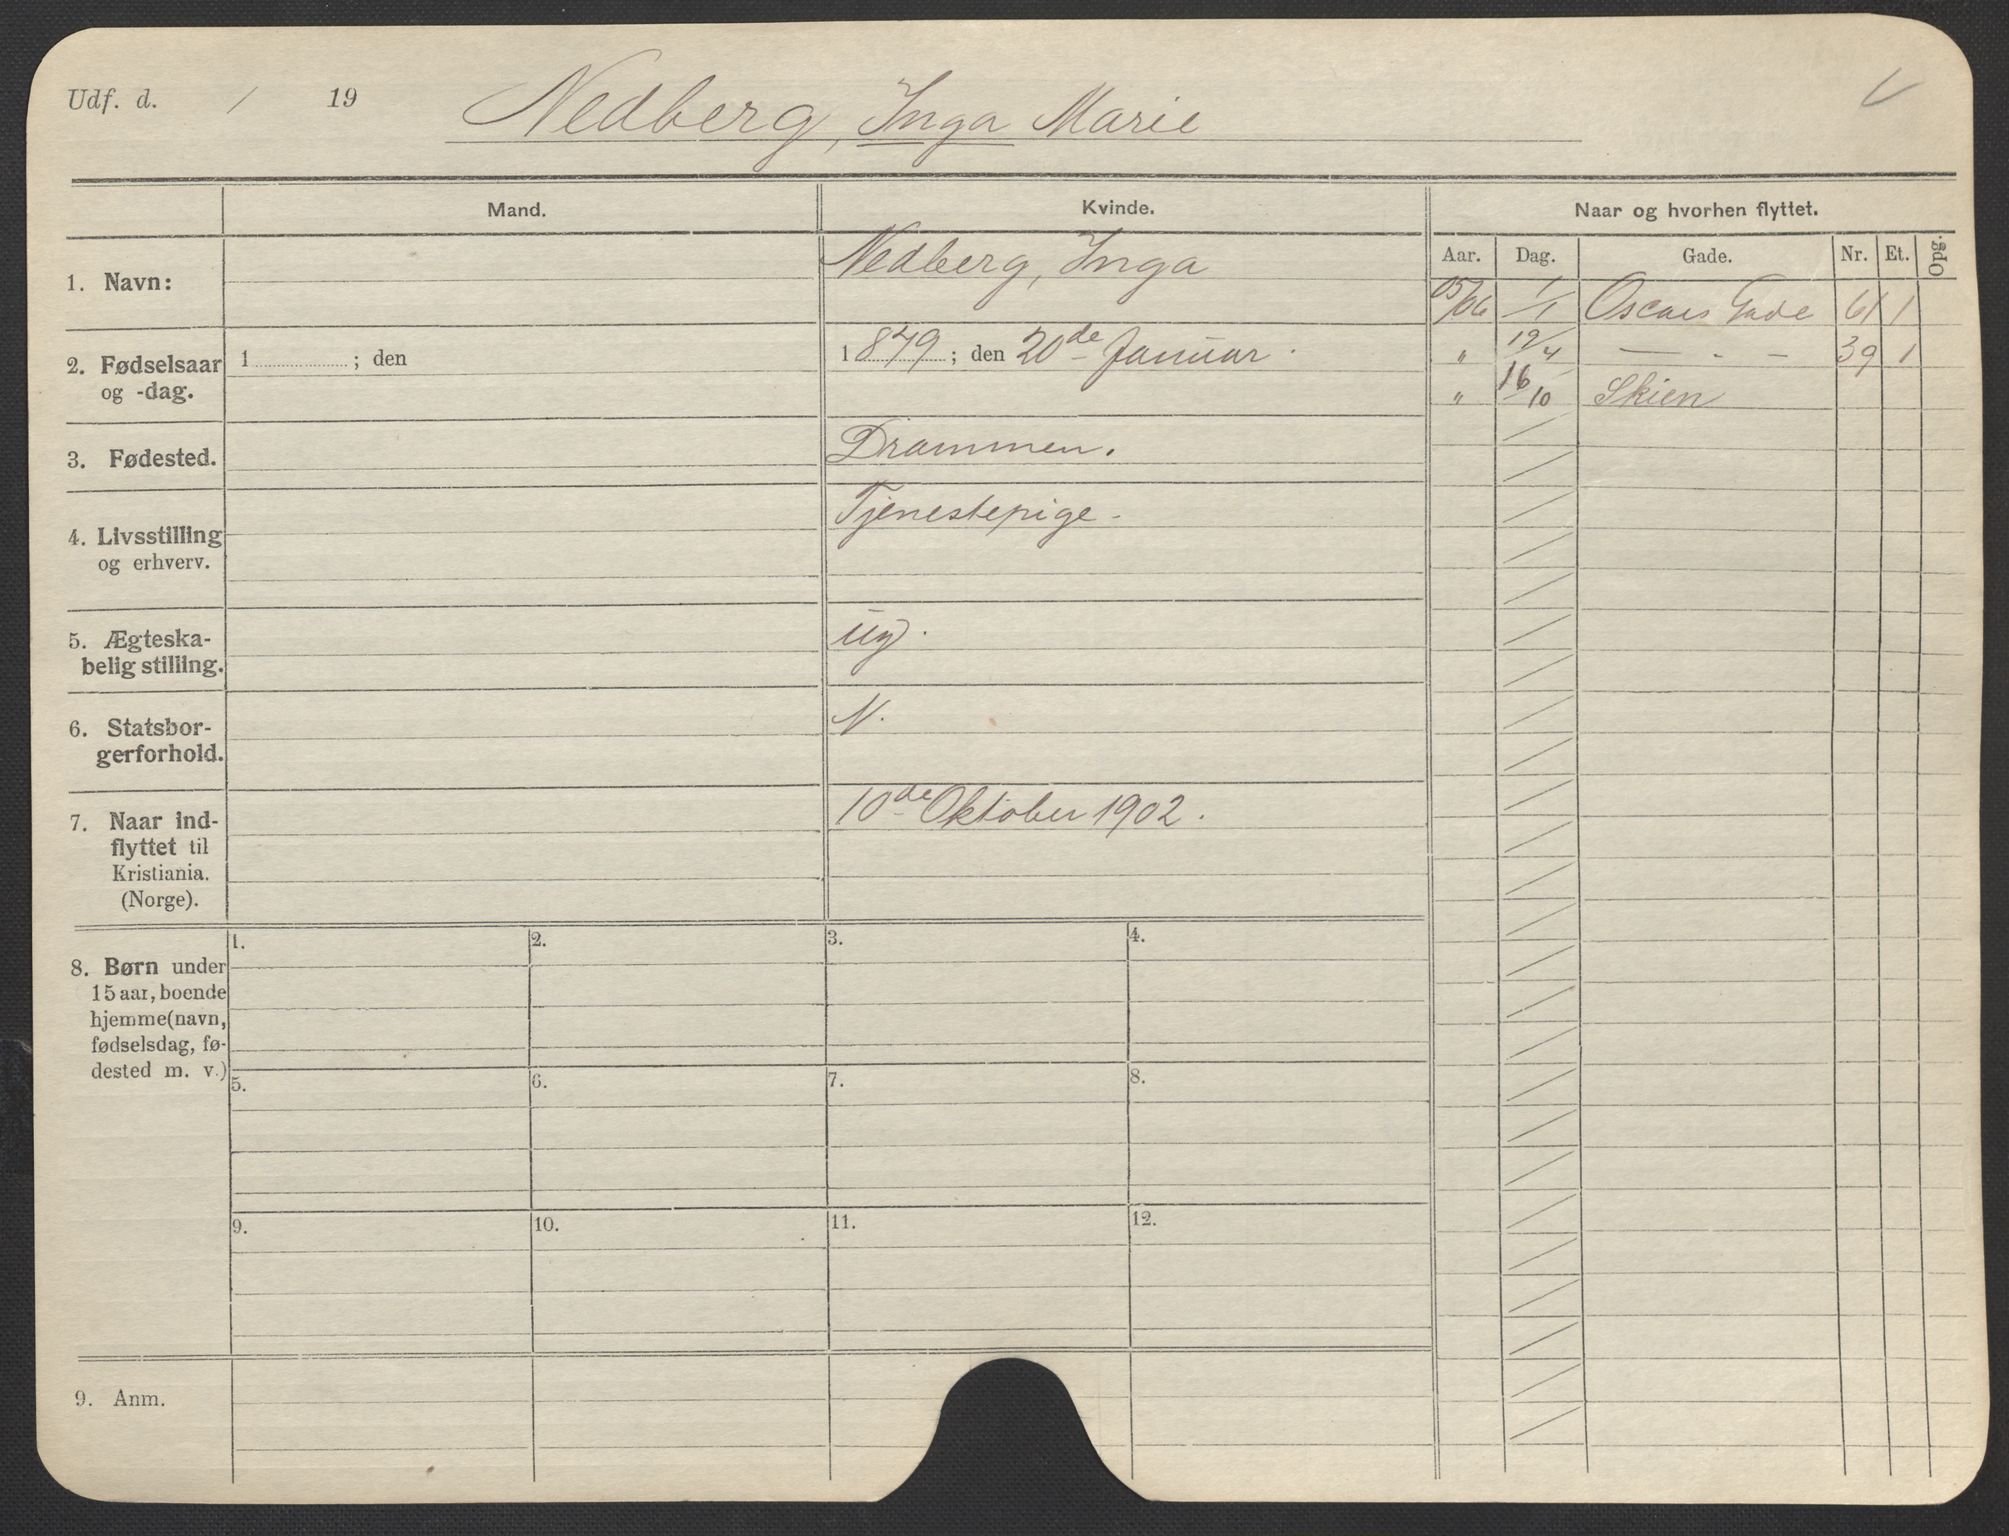 Udf. d. / 19 Nedberg, Inga Marie
Mand. Kvinde. Naar og hvorhen flyttet.
Aar. Dag. Gade. Nr. Et. Opg.
1. Navn: Nedberg, Inga
05/06 1/1 Oscars Gade 61 1
2. Fødselsaar og -dag. 1 ; den 1879 ; den 20de Januar.
" 19/4 — - - 39 1
" 16/10 Skien
3. Fødested. Drammen.
4. Livsstilling og erhverv. Tjenestepige.
5. Ægteska-
belig stilling. ug.
6. Statsbor-
gerforhold. N.
7. Naar ind-
flyttet til
Kristiania.
(Norge). 10de Oktober 1902.
8. Børn under
15 aar, boende
hjemme (navn,
fødselsdag, fø-
dested m. v.)
1. 2. 3. 4.
5. 6. 7. 8.
9. 10. 11. 12.
9. Anm.